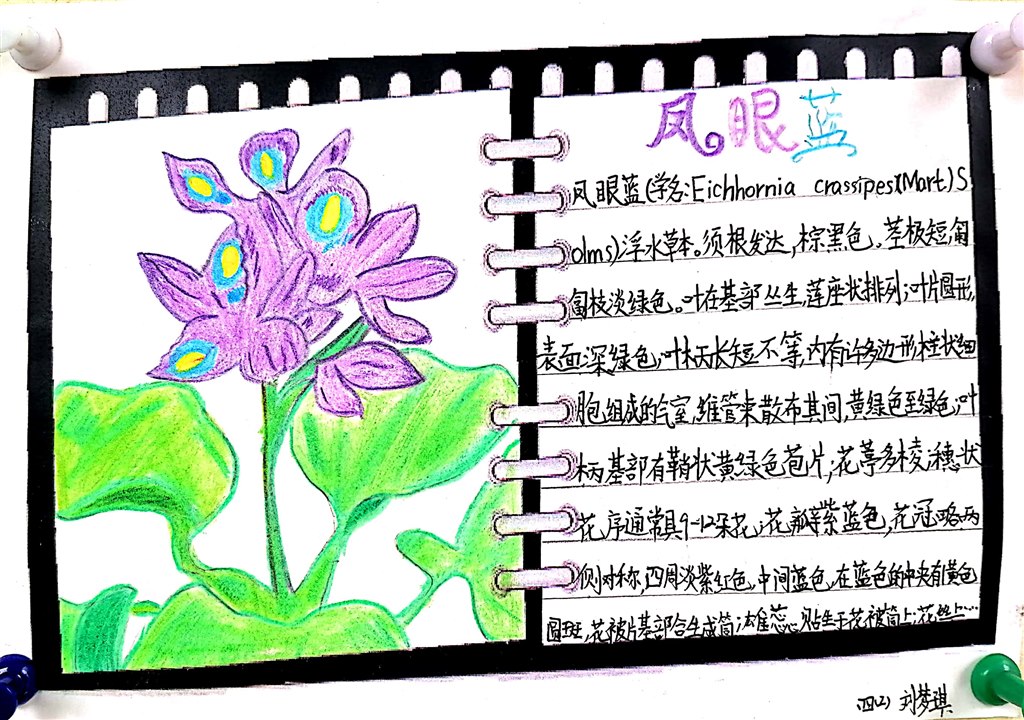 凤眼蓝
凤眼蓝(学名:Eichhornia crassipes(Mart)S
olms)浮水草本。须根发达,棕黑色。茎极短,匍
匐枝淡绿色。叶在基部丛生,莲座状排列;叶片圆形,
表面深绿色;叶柄长短不等,内有许多边形柱状细
胞组成的气室,维管束散布其间,黄绿色至绿色;叶
柄基部有鞘状黄绿色苞片;花葶多棱;穗状
花序通常具9-12朵花;花瓣紫蓝色,花冠略两
侧对称,四周淡紫红色,中间蓝色,在蓝色的中央有黄色
圆斑,花被片基部合生成筒;雄蕊贴生于花被筒上;花丝上…
四(2) 刘梦琪